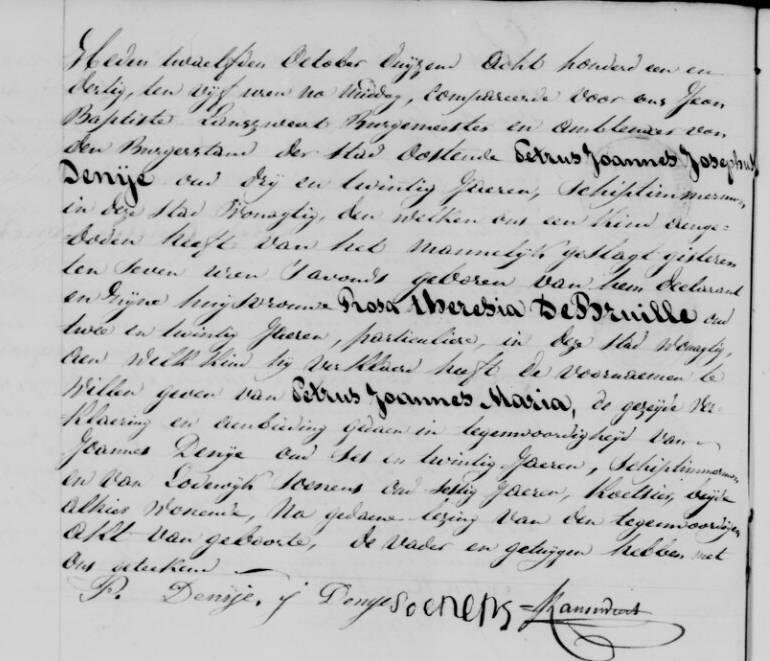 Heden twaelfden October duijzend acht honderd een en
dertig, ten vijf uren na middag, compareerde voor ons Jean
Baptiste Lanszweert Burgemeester en Ambtenaer van
den Burgerstand der stad Oostende Petrus Joannes Josephus
Denije oud drij en twintig Jaeren, Schiptimmerman,
in deze stad Woonagtig, den welken ons een kind aenge-
boden heeft van het mannelijk geslagt gisteren
ten seven uren s'avonds geboren van hem declarant
en zijne huijsvrouwe Rosa Theresia DeBruille oud
twee en twintig Jaeren, particuliere, in deze stad woonagtig,
aen welk kind hij verklaerd heeft de voornaemen te
Willen geven van Petrus Joannes Maria, de gezeijde Ver-
klaering en aenbieding gedaen in tegenwoordigheijd van
Joannes Denije oud ses en twintig Jaeren, Schiptimmerman
en van Lodewijk Soenens oud sestig Jaeren, Koetsier, beijde
alhier Wonende, Na gedaene lezing van den tegenwoordigen
akt van geboorte, de vader en getuijgen hebben met
ons geteekend
P. Denije, j Denije Soenens JBLanszweert